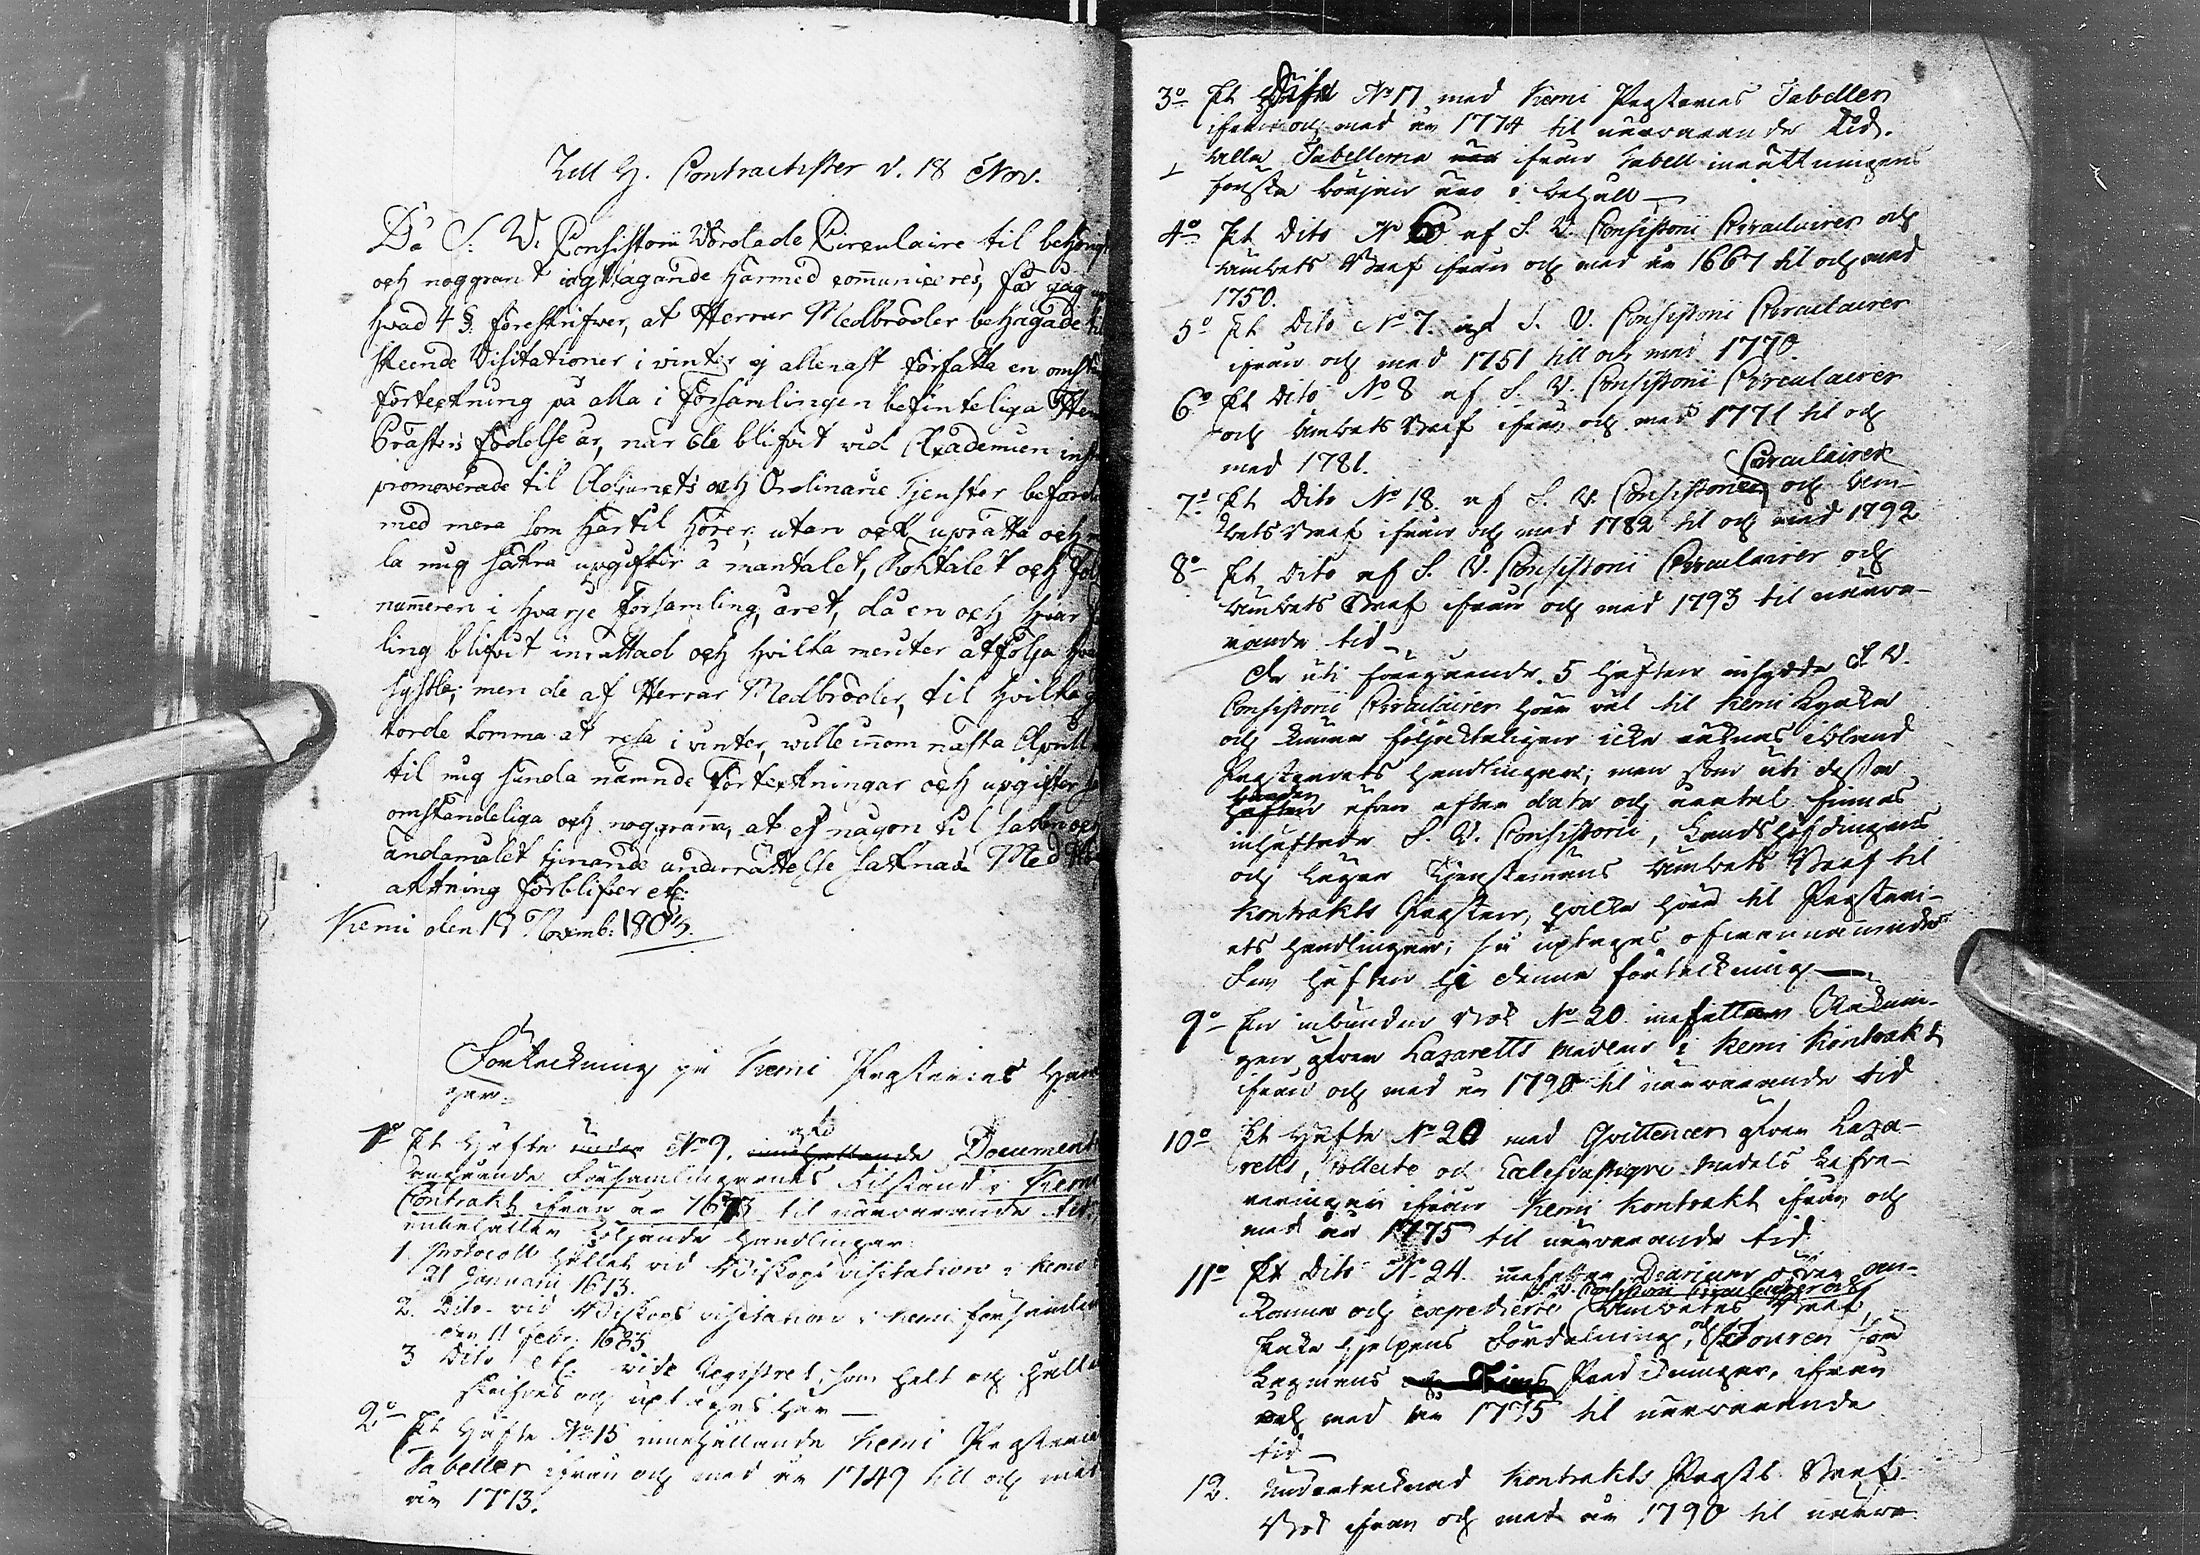 Till H. Contractister d. 18 Nov.
Då S. V. Consistorii Wördade Circulaire til behörigt
och noggrant iagttagande härmed communiceres, får jag
hvad 4 §. föreskrifwer, at Herrar Medbröder behagade
skeende Visitationer i vinter ej allenast författa en
förtekning på alla i Församlingen befinteliga
Prästers födelse år, när de blifvit vid Academien
promoverade til Adjuncts och Ordinarie Tjenster
med mera som härtil hörer, utan ock uprätta och
la mig säkra upgifter å mantalet, Röktalet och
numeren i hvarje Församling, året, då en och hvar
ling blifvit inrättad och hvilka meriter åtfölja
syssla; men de af Herrar Medbröder, til hvilka
torde komma at resa i vinter, wille innom nästa April
til mig sända nämnde Förtekningar och upgifter
omständeliga och noggranna, at ej någon til saken och
ändamålet tjenande underrättelse saknas Med
aktning förblifver etc.
Kemi den 19 Novemb: 1805.
Förteckning på Kemi Prosteries
gar.
1o Et Häfte under No 9. innehållande Documenter
rörande Församlingarnes tilstånd i Kemi
Contrakt ifrån år 1673 til närvarande tid,
innehåller följande Handlingar:
1 Protocoll hållet vid Biskops visitation i Kemi
21 Januarii 1673.
2. Dito vid Biskops visitation i Kemi församling
den 11 Febr. 1685
3 Dito etc. vide Registret, som helt och hållit
skrifves och uptages här —
2o Et Häfte No 15 innehållande Kemi Prosteries
Tabeller ifrån och med år 1749 till och med
år 1773.
3o Et Häfte No 17 med Kemi Prosteries Tabeller
ifrån och med år 1774 til närvarande tid.
Alla Tabellerne ifrån Tabell inrättningens
första början äro i behåll —
4o Et Dito No 6 af S. V. Consistorii Circulairer och
Ämbets Bref ifrån och med år 1667 til och med
1750.
5o Et Dito No 7. af S. V. Consistorii Circulairer
ifrån och med 1751 till och med 1770.
6o Et Dito No 8 af S. V. Consistorii Circulairer
och Ämbets Bref ifrån och med 1771 til och
med 1781.
Circulairer
7o Et Dito No 18. af S. V. Consistorii och Äm-
bets Bref ifrån och med 1782 til och med 1792
8o Et Dito af S. V. Consistorii Circulairer och
Ämbets Bref ifrån och med 1793 til närva-
rande tid —
De uti föregående 5 Häften S. V.
Consistorii Circulairer höra väl til Kemi Kyrka
och kunna följakteligen icke räknas ibland
Prosteriets Handlingar; men som uti dessa
Häften äfven efter dato och årtal finnas
inhäftade S. V. Consistorii, Landshöfdingens
och Ämbets Bref til
Kontrakts Prosten, hvilka höra til Prosteri-
ets Handlingar; så uptages ofvannämnde
fem Häften i denna förteckning —
9o En inbunden Bok No 20 Räknin-
gar öfver Lazaretts medlen i Kemi Kontrakt
ifrån och med år 1790 til närvarande tid
10o Et Häfte No 20 med Qvittencer öfver Laza-
retts, Collecte och medels lefve-
reringen ifrån Kemi Kontrakt ifrån och
med år 1775 til närvarande tid.
11o Et Dito No 24. Diarium öfver an-
S. V. Consistorii Circulairer och
komne och expedierte Ämbetes Bref,
Fördelning, och
ifrån
och med år 1775 til närvarande
tid —
12. Undertecknad Kontrakts Prosts Bref
Bok ifrån och med år 1790 til närva-